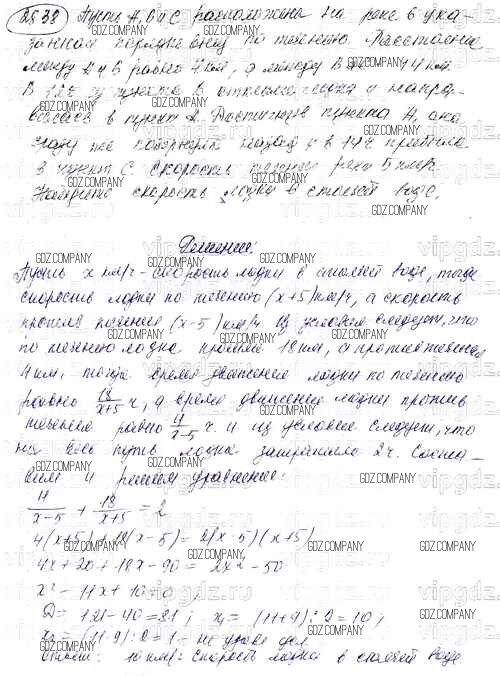 Пусть А, В и С расположены на реке в ука-
занном порядке вниз по течению. Расстояние
между А и В равно 4 км, а между В и С 14 км.
В 12 ч из пункта В отплыла лодка и напра-
вилась в пункт А. Достигнув пункта А, она
сразу же повернула назад и в 14 ч прибыла
в пункт С. Скорость течения реки 5 км/ч.
Найдите скорость лодки в стоячей воде.
Решение:
Пусть x км/ч - скорость лодки в стоячей воде, тогда
скорость лодки по течению (x+5) км/ч, а скорость
против течения (x-5) км/ч. Из условия следует, что
по течению лодка прошла 18 км, а против течения
4 км, тогда время движения лодки по течению
равно 18/x+5 ч, а время движения лодки против
течения равно 4/x-5 ч. и из условия следует, что
на весь путь лодка затратила 2 ч. Соста-
вим и решим уравнение:
4/x-5 + 18/x+5 = 2
4(x+5)+18(x-5) = 2(x-5)(x+5)
4x+20+18x-90 = 2x²-50
x²-11x+10=0
D = 121-40=81; x₁ = (11+9):2=10;
x₂ = (11-9):2=1 - не удов
Ответ: 10 км/ч скорость лодки в стоячей воде.
GDZ.COMPANY
vipgdz.ru